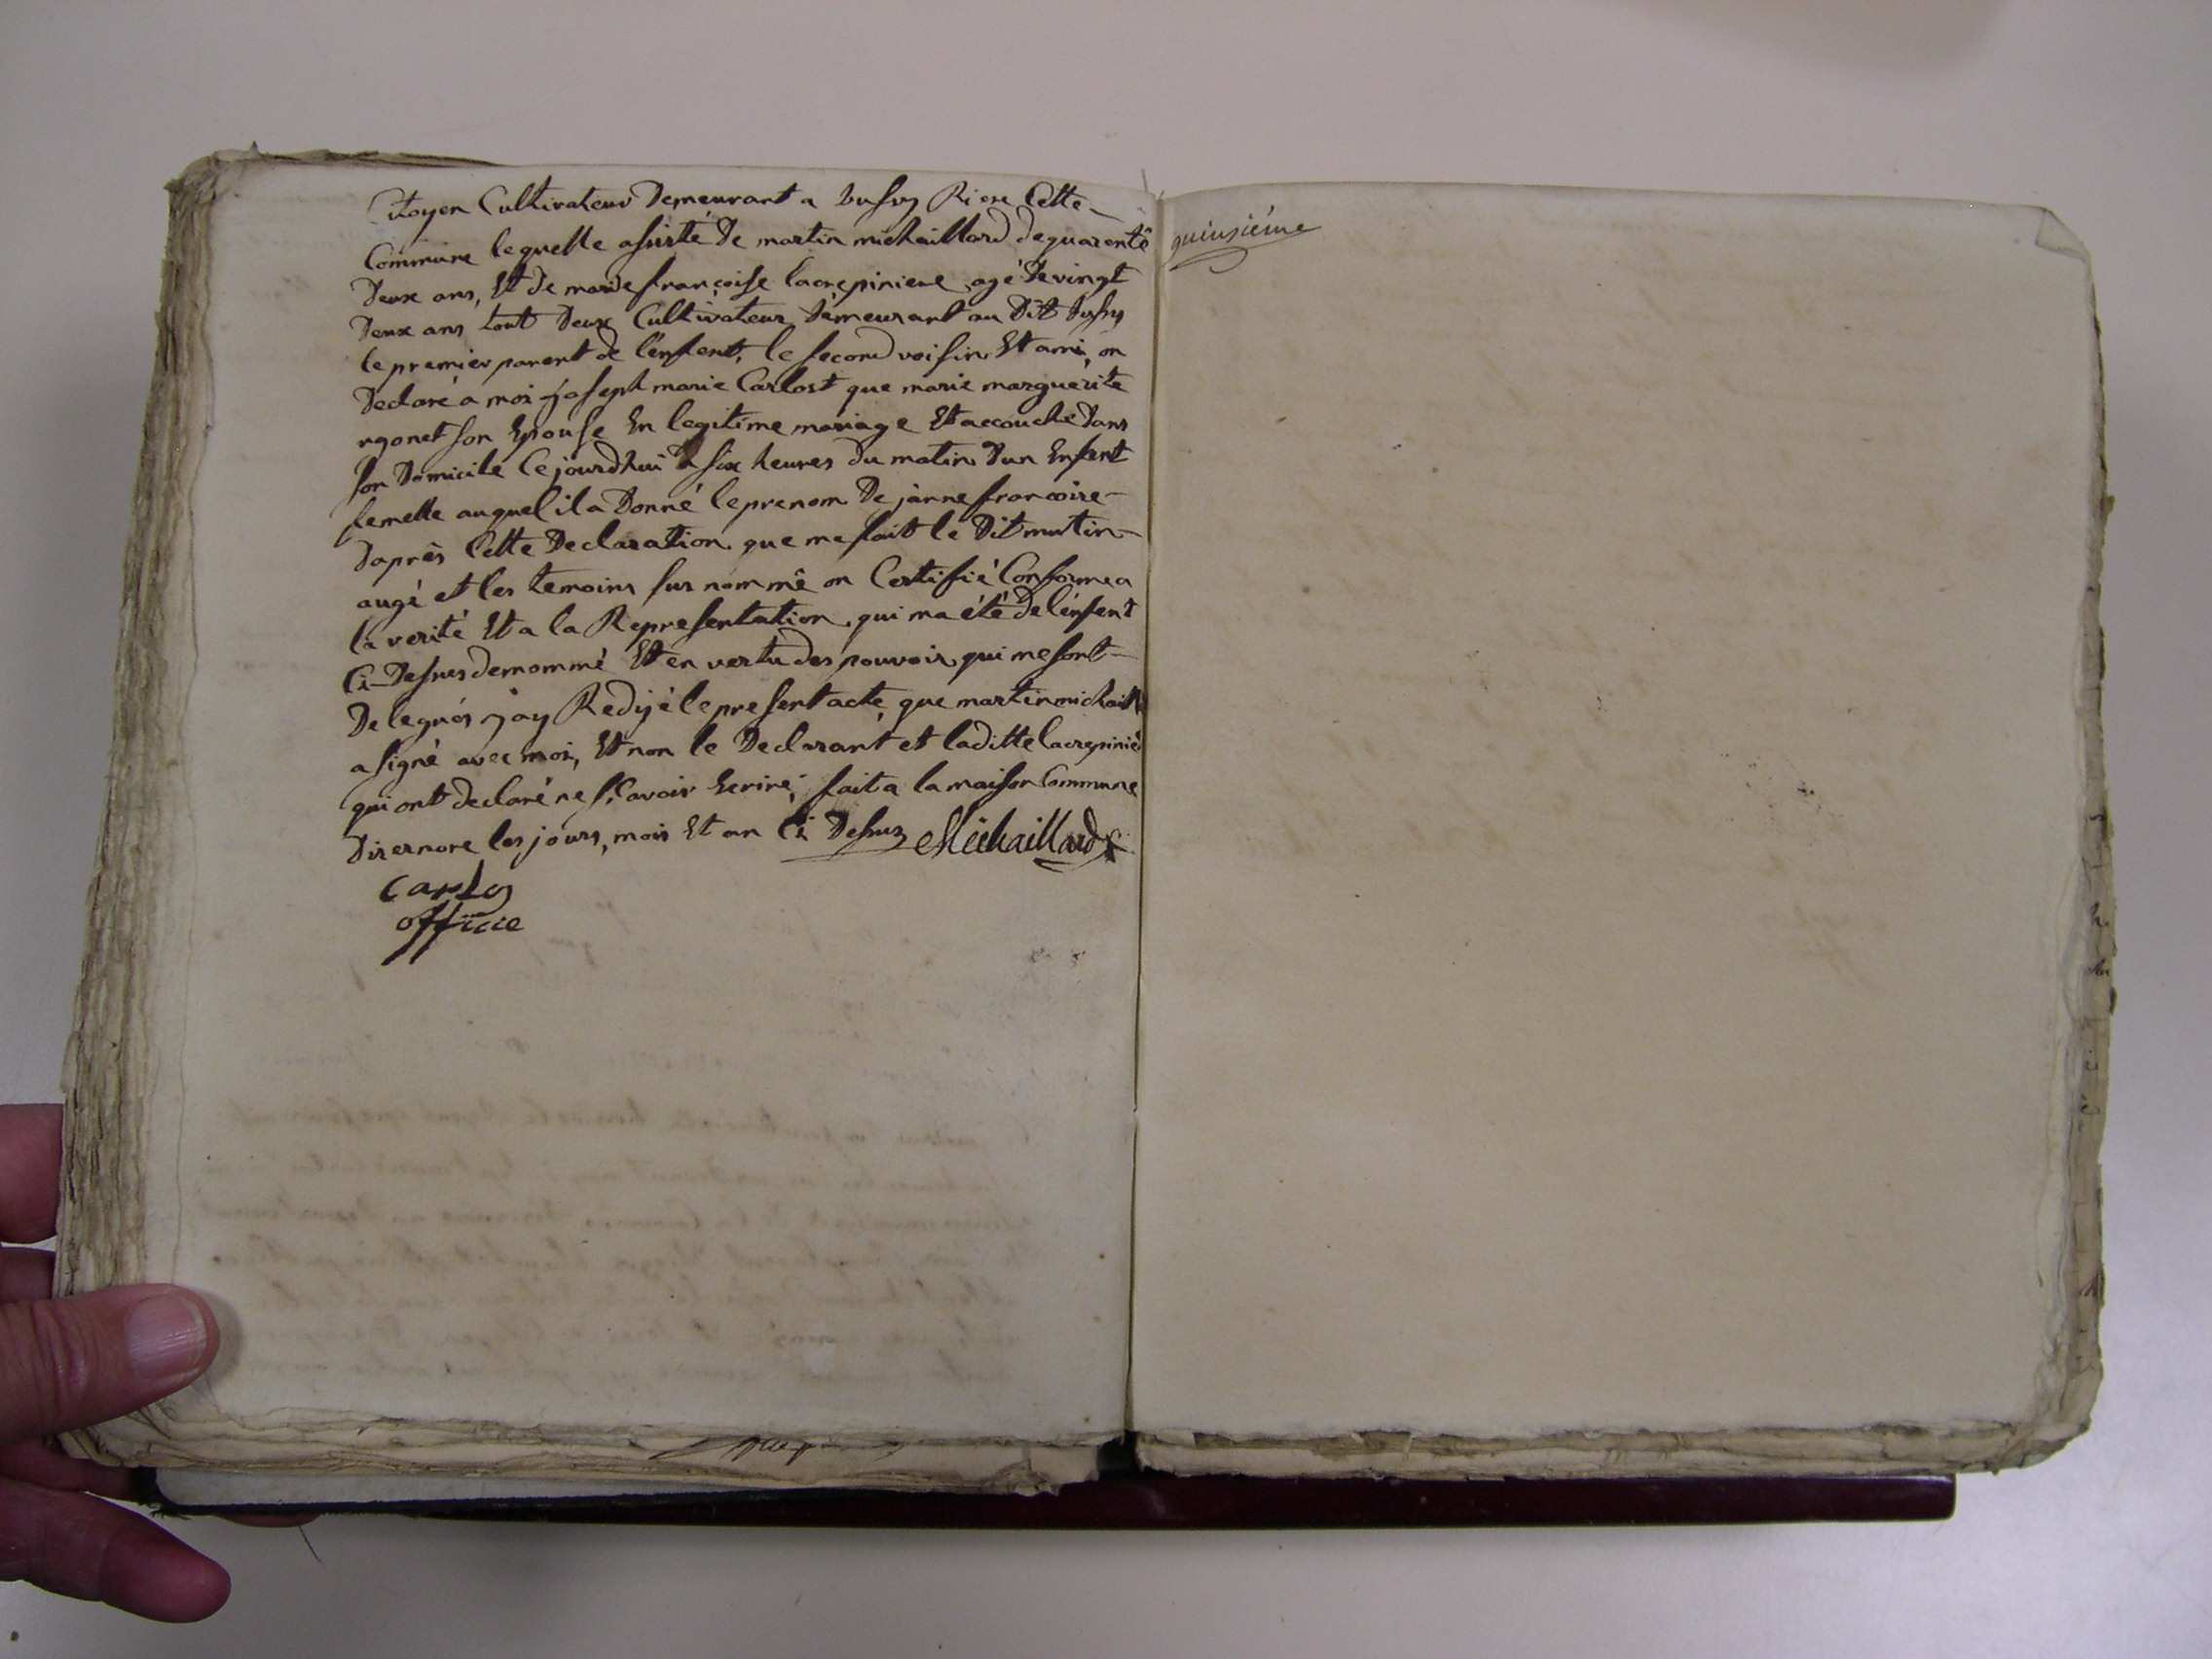 Citoyen Cultivateur Demeurant a bussy Riere Cette
Commune lequelle assisté De martin michaillard de quarente
Deux ans, Et de marie françoise lacrepiniere agé De vingt
Deux ans tout Deux Cultivateur Demeurant au Dit bussy
le premier parent de l'enfent, le second voisin Et ami, on
Declaré a moi joseph marie Carlost que marie marguerite
son Epouse En legitime mariage Et accouché Dans
son Domicile Cejourdhui a six heures du matin Dun Enfent
femelle auquel il a Donné le prenom De janne francoise
Daprès Cette Declaration que me fait le Dit martin
augé et les temoins sus nommé on Certifié Conforme a
la verité Et a la Representation qui ma été De lénfent
Ci-Dessus denommé Et en vertu des pouvoir qui me sont
Delegués jay Redijé le present acte, que martin michaill
a signé avec moi, Et non le Declarant et laditte lacrepinie
qui ont declaré ne sçavoir Ecrire; fait a la maison Commune
Disernore les jours, mois Et an Ci Dessus Michaillard
Carlos
officie
quinsiéme